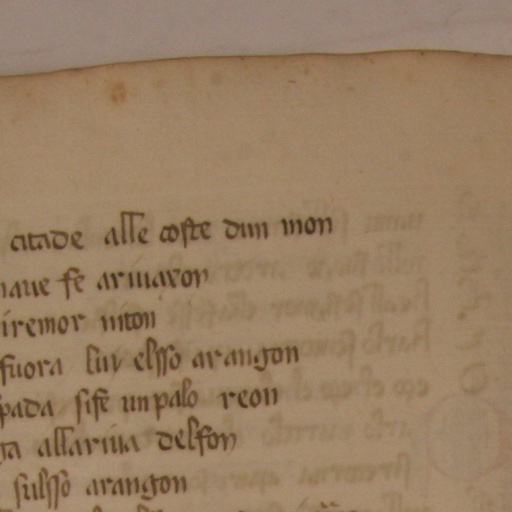 citade alle coste dun mon
naue se ariuaron
iremor niton
fuora lui elsso arangon
pada sise un palo reon
ga allariua delfon
sulsso arangon